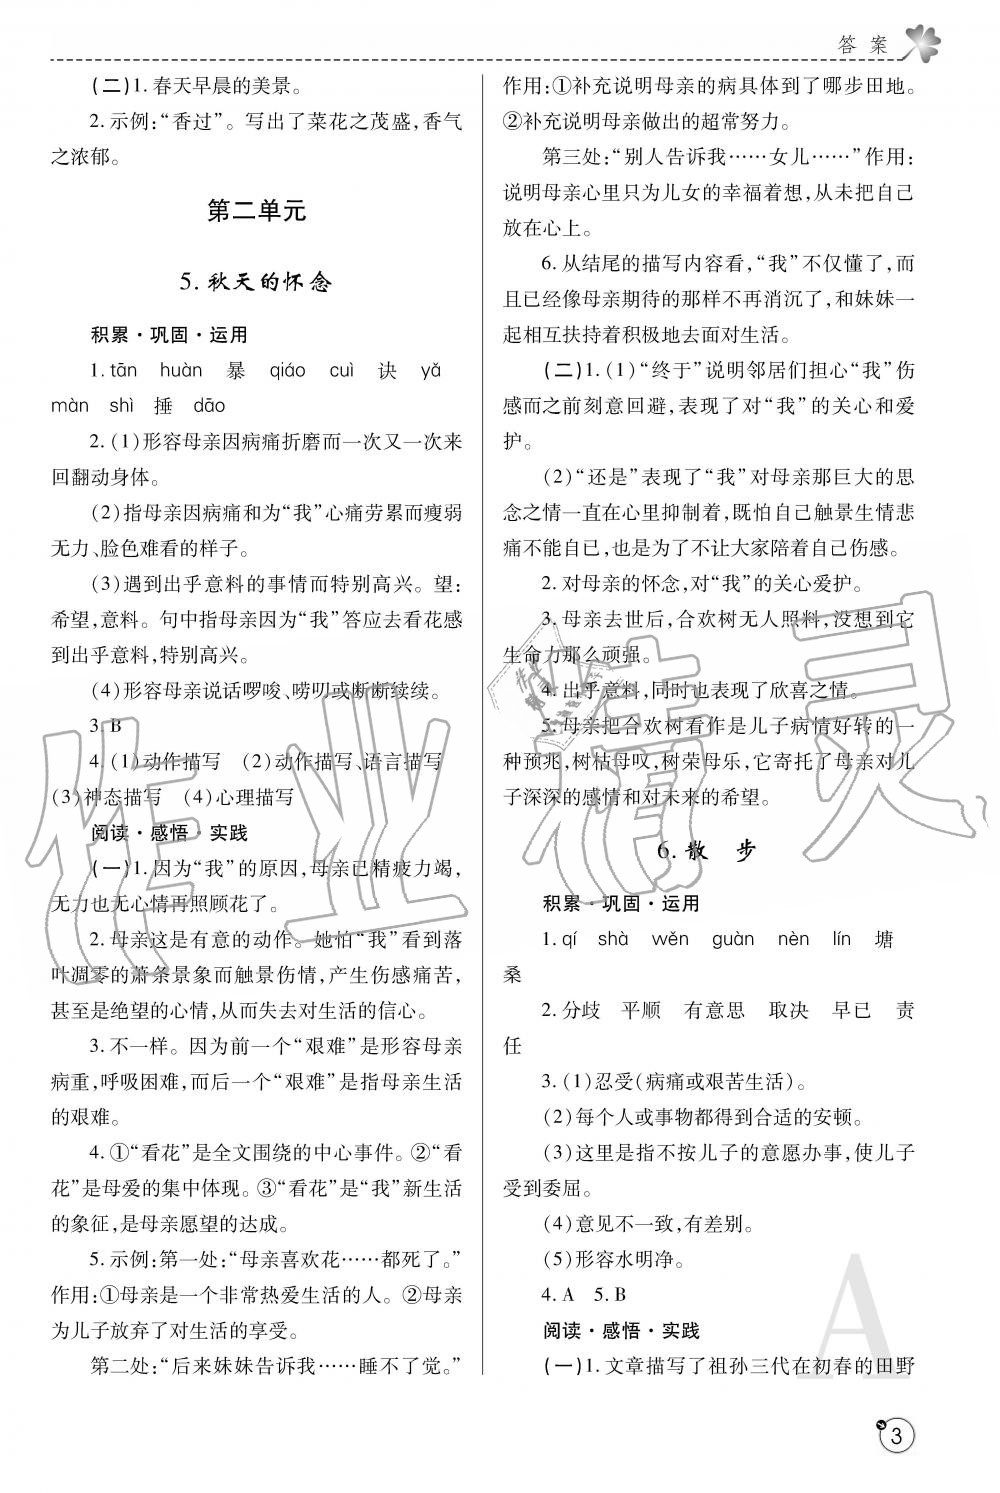 答 案
(二)1. 春天早晨的美景。
2. 示例:“香过”。写出了菜花之茂盛,香气
之浓郁。
第二单元
5. 秋天的怀念
积累·巩固·运用
1. tān huàn 暴 qiáo cuì 诀 yǎ
màn shì 捶 dāo
2. (1)形容母亲因病痛折磨而一次又一次来
回翻动身体。
(2)指母亲因病痛和为“我”心痛劳累而瘦弱
无力、脸色难看的样子。
(3)遇到出乎意料的事情而特别高兴。望:
希望,意料。句中指母亲因为“我”答应去看花感
到出乎意料,特别高兴。
(4)形容母亲说话啰唆、唠叨或断断续续。
3. B
4. (1)动作描写 (2)动作描写、语言描写
(3)神态描写 (4)心理描写
阅读·感悟·实践
(一)1. 因为“我”的原因,母亲已精疲力竭,
无力也无心情再照顾花了。
2. 母亲这是有意的动作。她怕“我”看到落
叶凋零的萧条景象而触景伤情,产生伤感痛苦,
甚至是绝望的心情,从而失去对生活的信心。
3. 不一样。因为前一个“艰难”是形容母亲
病重,呼吸困难,而后一个“艰难”是指母亲生活
的艰难。
4. ①“看花”是全文围绕的中心事件。②“看
花”是母爱的集中体现。③“看花”是“我”新生活
的象征,是母亲愿望的达成。
5. 示例:第一处:“母亲喜欢花……都死了。”
作用:①母亲是一个非常热爱生活的人。②母亲
为儿子放弃了对生活的享受。
第二处:“后来妹妹告诉我……睡不了觉。”
作用:①补充说明母亲的病具体到了哪步田地。
②补充说明母亲做出的超常努力。
第三处:“别人告诉我……女儿……”作用:
说明母亲心里只为儿女的幸福着想,从未把自己
放在心上。
6. 从结尾的描写内容看,“我”不仅懂了,而
且已经像母亲期待的那样不再消沉了,和妹妹一
起相互扶持着积极地去面对生活。
(二)1. (1)“终于”说明邻居们担心“我”伤
感而之前刻意回避,表现了对“我”的关心和爱
护。
(2)“还是”表现了“我”对母亲那巨大的思
念之情一直在心里抑制着,既怕自己触景生情悲
痛不能自已,也是为了不让大家陪着自己伤感。
2. 对母亲的怀念,对“我”的关心爱护。
3. 母亲去世后,合欢树无人照料,没想到它
生命力那么顽强。
4. 出乎意料,同时也表现了欣喜之情。
5. 母亲把合欢树看作是儿子病情好转的一
种预兆,树枯母叹,树荣母乐,它寄托了母亲对儿
子深深的感情和对未来的希望。
6. 散 步
积累·巩固·运用
1. qí shà wěn guàn nèn lín 塘
桑
2. 分歧 平顺 有意思 取决 早已 责
任
3. (1)忍受(病痛或艰苦生活)。
(2)每个人或事物都得到合适的安顿。
(3)这里是指不按儿子的意愿办事,使儿子
受到委屈。
(4)意见不一致,有差别。
(5)形容水明净。
4. A 5. B
阅读·感悟·实践
(一)1. 文章描写了祖孙三代在初春的田野
A
3
作业精灵